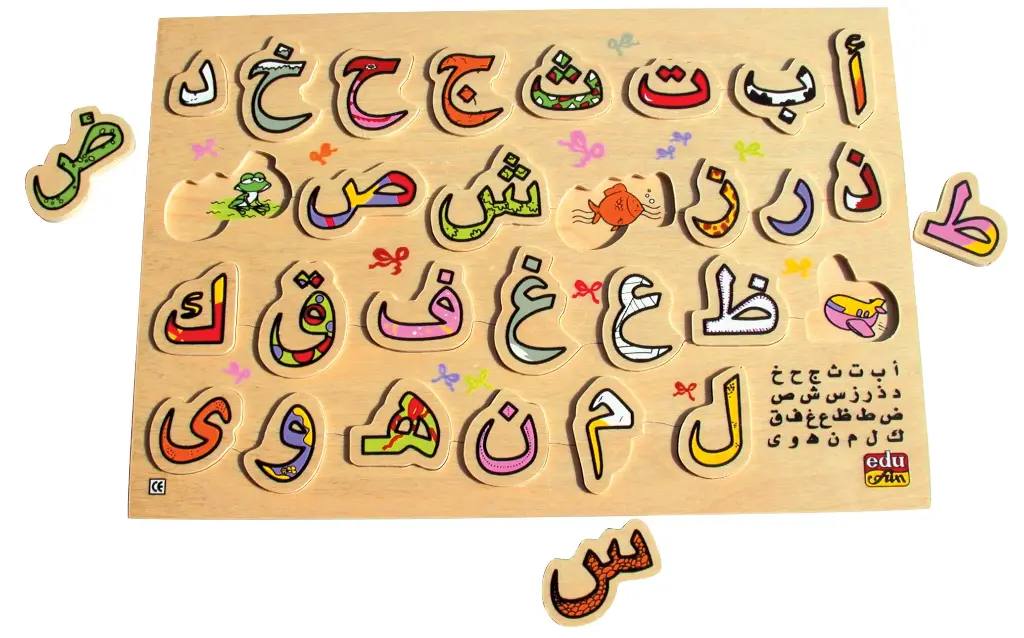 أ ب ت ث ج ح خ د
ض
ذ ر ز ش ص
ط
ظ ع غ ف ق ك
ل م ن ه و ى
أ ب ت ث ج ح خ
د ذ ر ز س ش ص
ض ط ظ ع غ ف ق
ك ل م ن ه و ى
edu
fun
CE
س